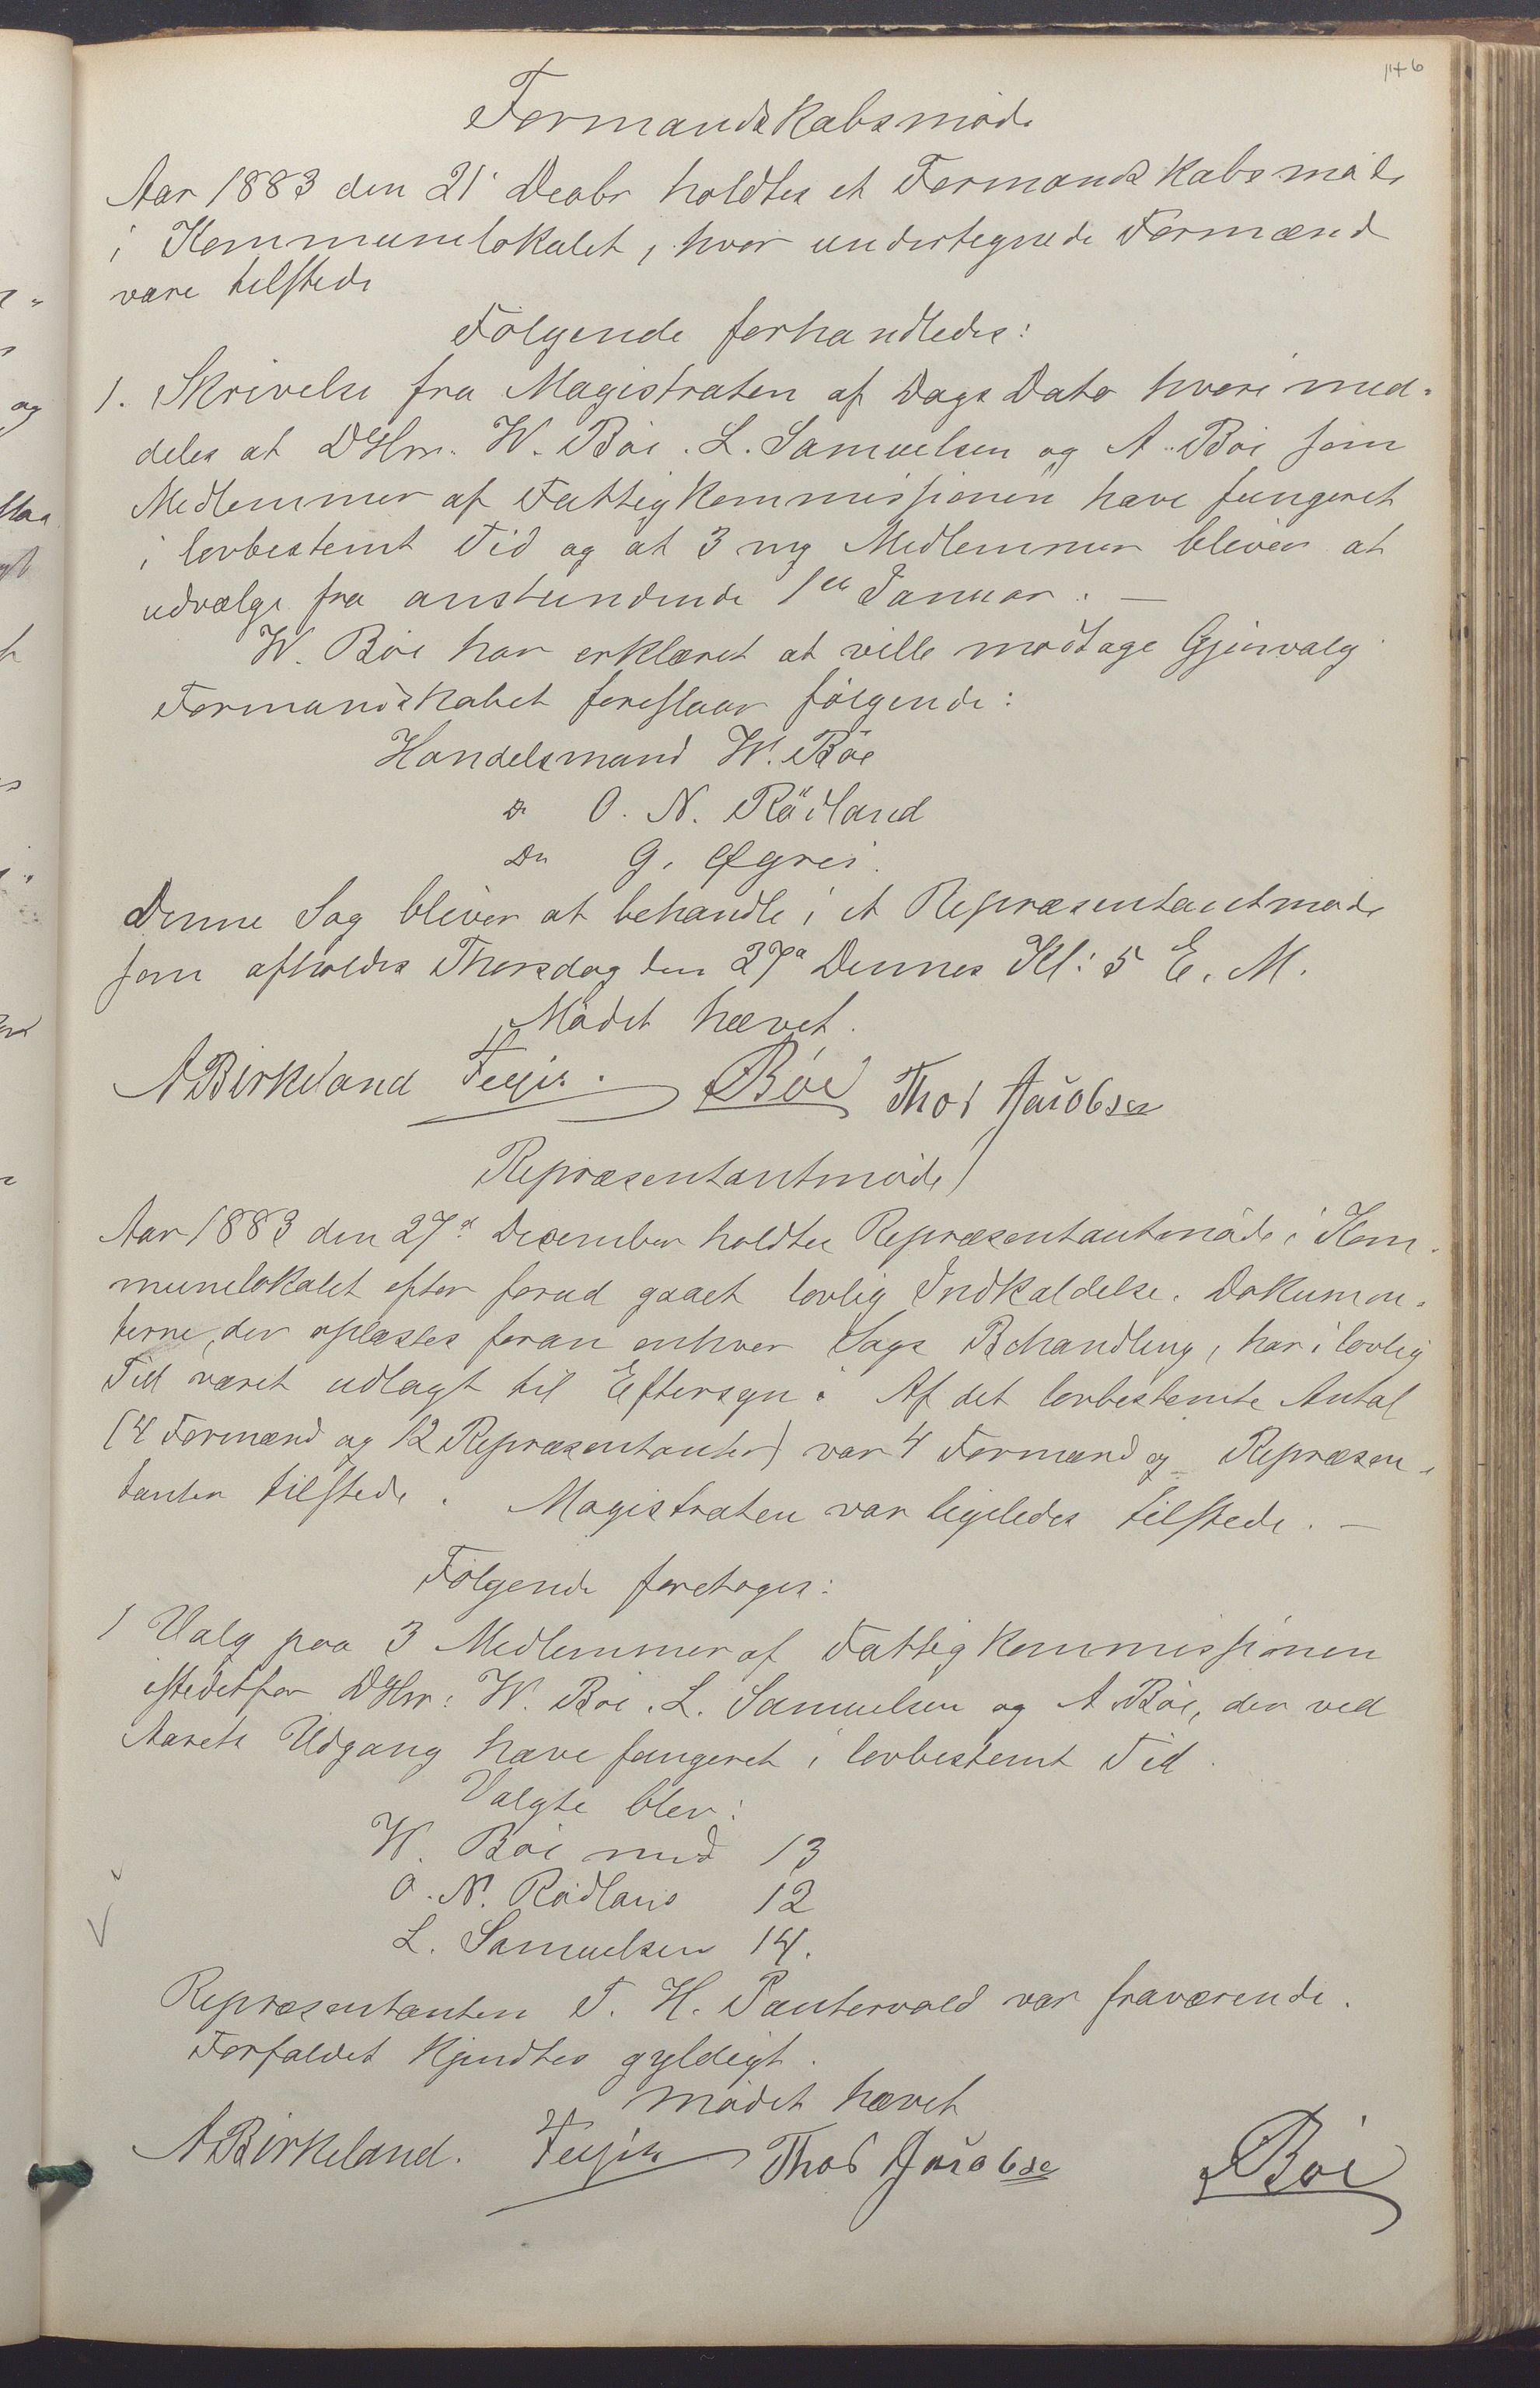 146
Formandskabsmøde
Aar 1883 den 21' Decbr holdtes et Formandskabsmøde
i Kommunelokalet, hvor undertegnede Formænd
vare tilstede
Følgende forhandledes:
1. Skrivelse fra Magistraten af Dags Dato hvori med-
deles at DHrr. W. Bøe. L. Samuelsen og A. Bøe som
Medlemmer af Fattigkommissionen have fungeret
i lovbestemt Tid og at 3 ny Medlemmer bliver at
udvælge fra anstundende 1ste Januar. —
W. Bøe har erklæret at ville modtage Gjenvalg
Formandskabet foreslaar følgende:
Handelsmand W. Bøe
Do O. N. Rødland
Do G. Øgrei.
Denne Sag bliver at behandle i et Repræsentantmøde
som afholdes Thorsdag den 27de Dennes Kl: 5 E. M.
Mødet hævet.
A Birkeland Bøe Thos Jacobsen
Repræsentantmøde
Aar 1883 den 27de December holdtes Repræsentantmøde i Kom-
munelokalet efter forud gaaet lovlig Indkaldelse. Dokumen-
terne, der oplæstes foran enhver Sags Behandling, har i lovlig
Tid været udlagt til Eftersyn. Af det lovbestemte Antal
(4 Formænd og 12 Repræsentanter) var 4 Formænd og Repræsen-
tanter tilstede. Magistraten var ligeledes tilstede. —
Følgende foretoges:
1 Valg paa 3 Medlemmer af Fattigkommissionen
istedetfor DHrr: W. Bøe. L. Samuelsen og A. Bøe, der ved
Aarets Udgang have fungeret i lovbestemt Tid.
Valgte blev:
W. Bøe med 13
O. N. Rødland 12
L. Samuelsen 14.
Repræsentanten T. H. Puntervold var fraværende.
Forfaldet kjendtes gyldigt.
Mødet hævet
A Birkeland. Thos Jacobsen Bøe